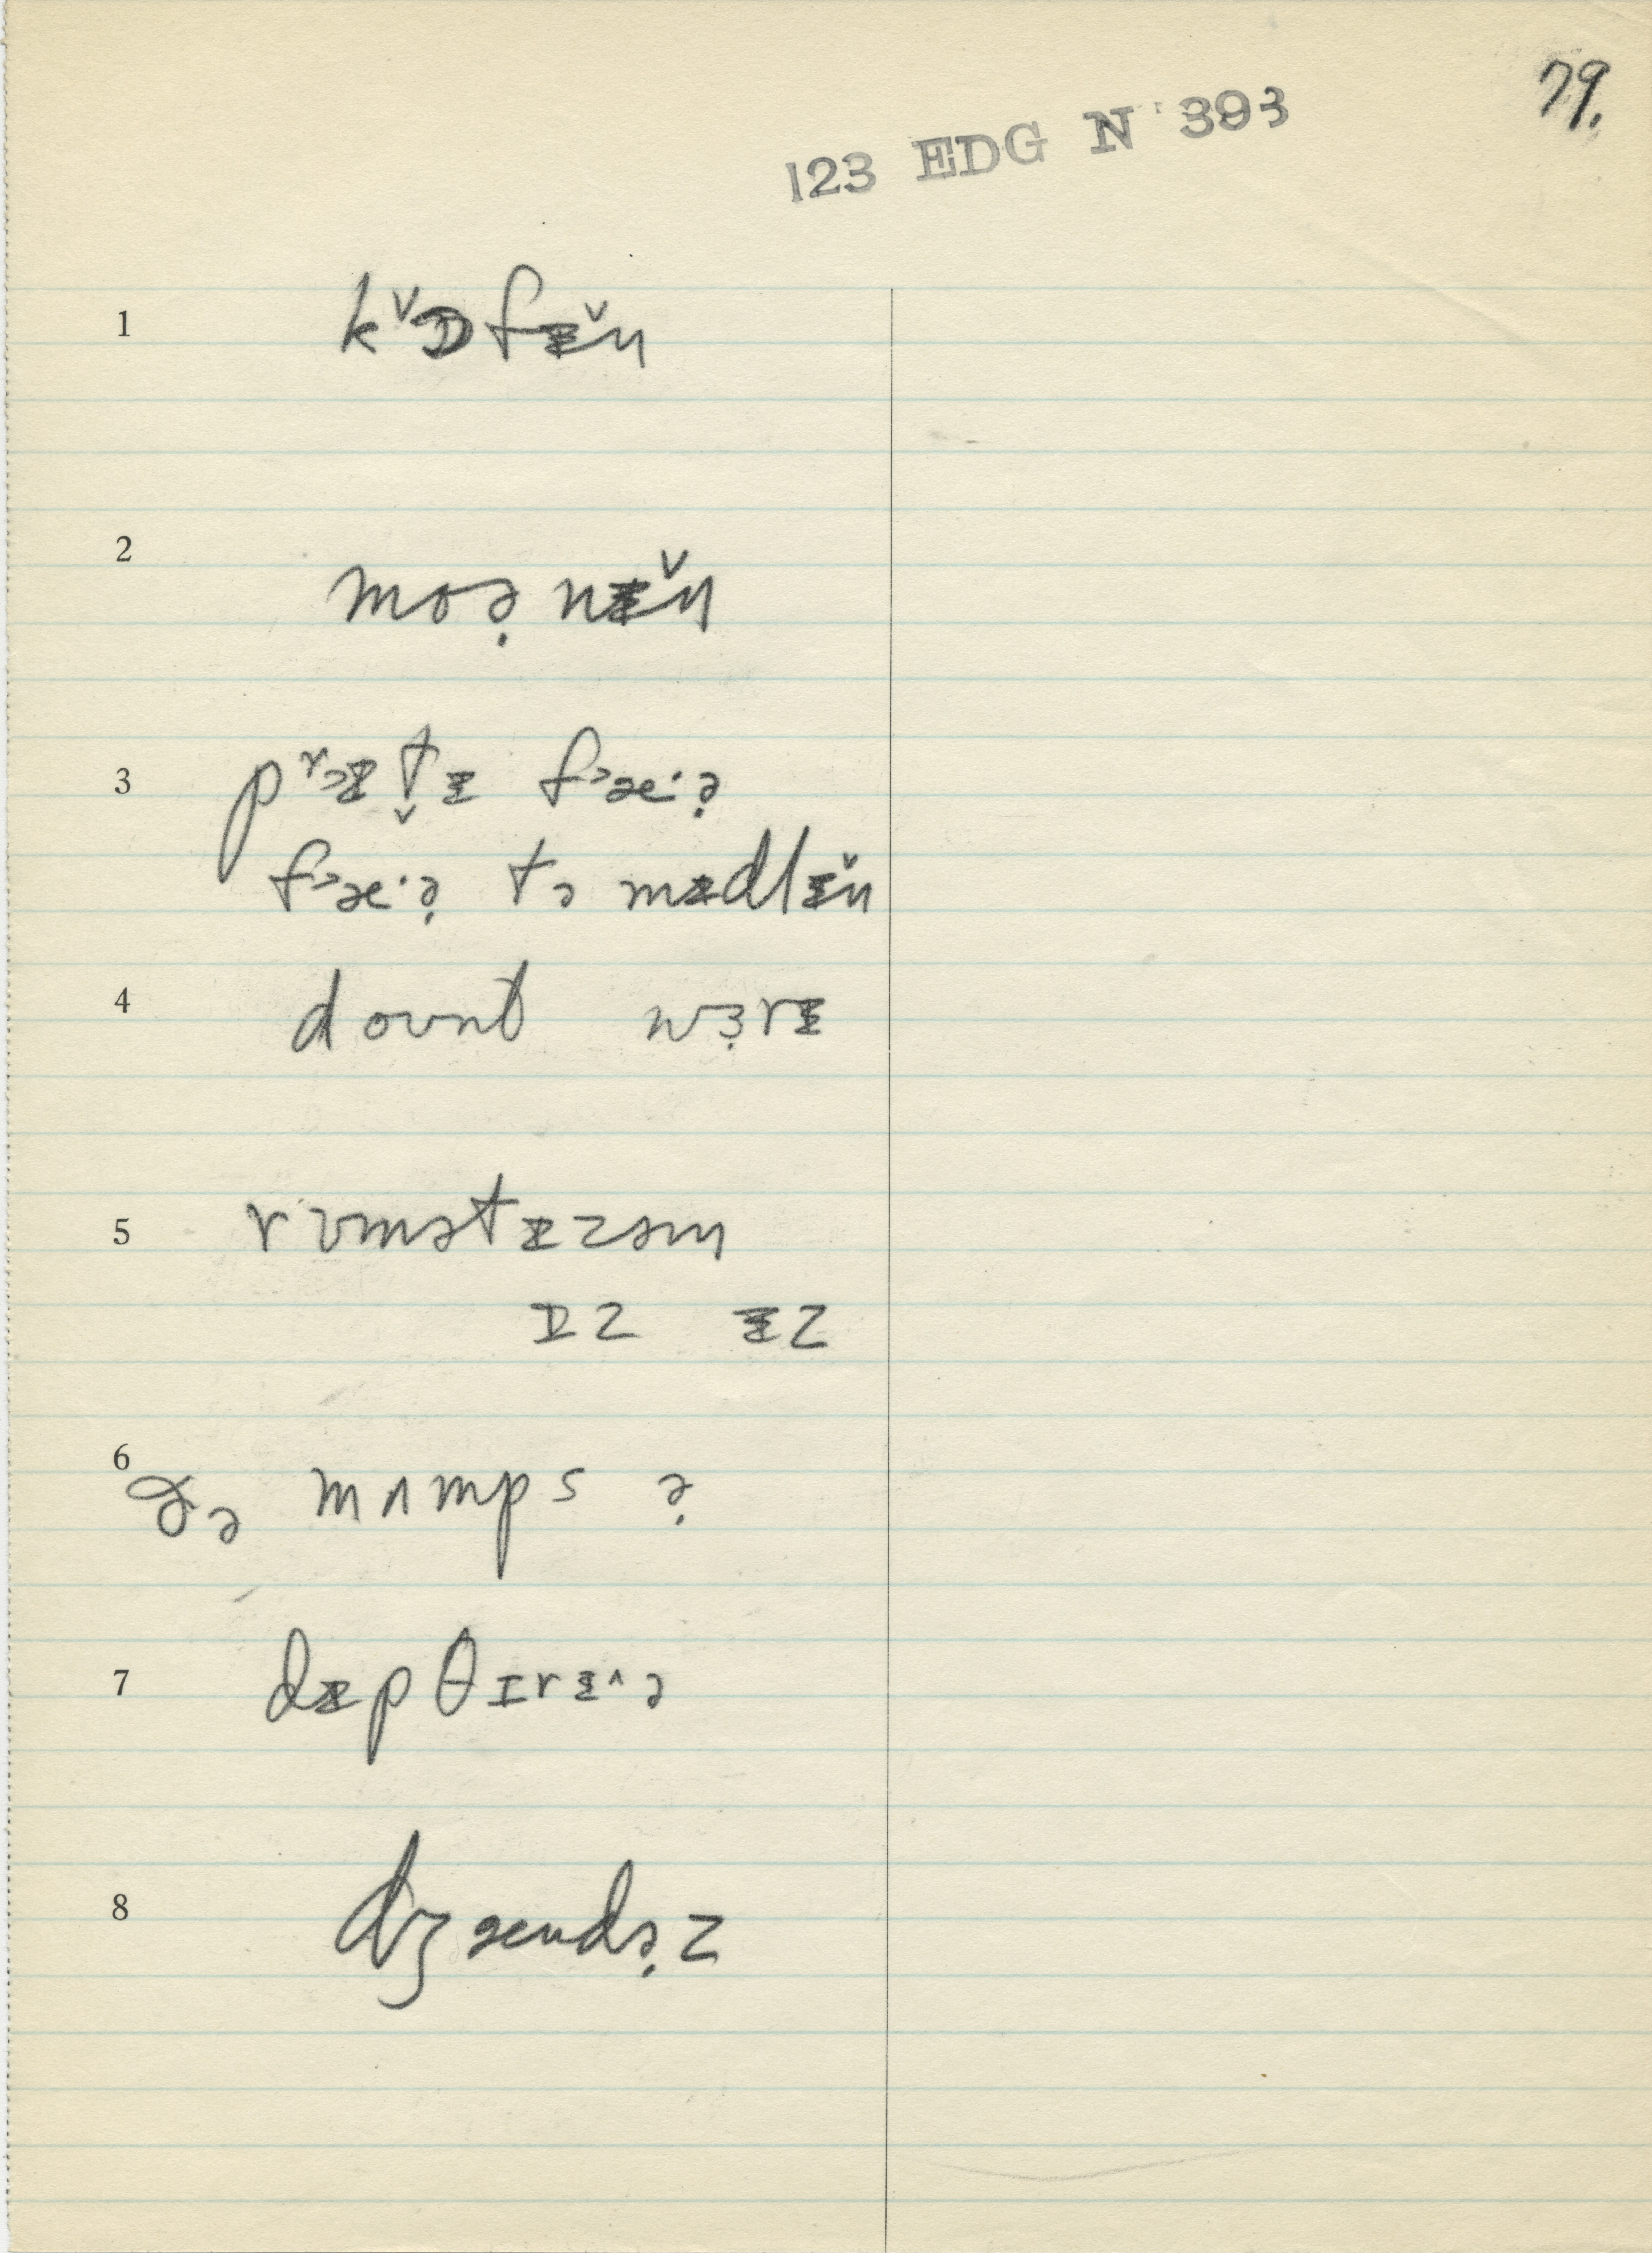 79.
123 EDG N 393
1 kᵛɒfɪ̵̆n
2 moə̣nɪ̵̆n
3 pʳɔɪ̵t̬ɪ̵ fᵊæ·ə̣
fᵊæ·ə̣ tə mɪ̵dlɪ̵̆n
4 doʊnt wɜ̣rɪ̵
5 rʊmətɪ̵zəm
ɪz ɪ̵z
6 ðə mʌmps ə̣
7 dɪ̵pθɪrɪ̵^ə
8 dʒændə̣z